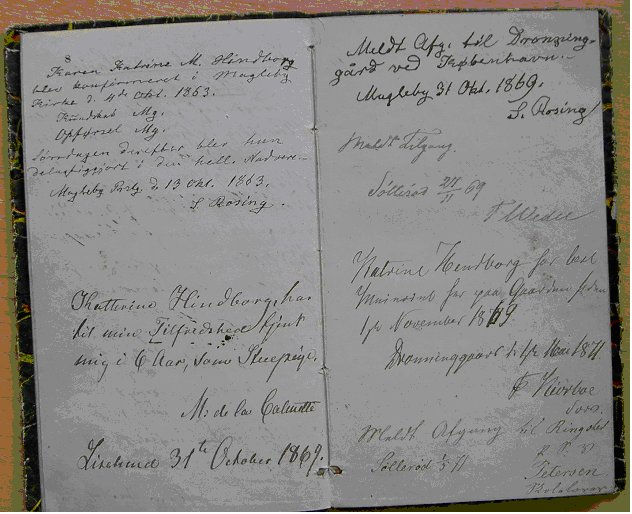 Karen Katrine M. Hindborg
blev konfirmeret i Magleby
Kirke d. 4de Okt. 1863.
Kundskab Mg.
Opførsel Mg.
Søndagen derefter blev hun
delagtiggjort i den hell. Nadvere.
Magleby Prstg. d. 13 Okt. 1863.
S. Rosing.
Kathrine Hindborg har
til min Tilfredshed tjent
mig i 6 Aar, som Stuepige.
M: de la Calmette
Liselund 31te October 1869.
Meldt Afg. til Dronning-
gård ved København.
Magleby 31 Okt. 1869.
S. Rosing
Meldt Tilgang.
Søllerød 27/11 69
F Wedel
Katrine Hendborg har
har paa Gaarden siden
1ste November 1869
Dronninggaard d. 1ste Mai 1871
Meldt Afgang til Ringsted
Søllerød 1/5 71
Petersen